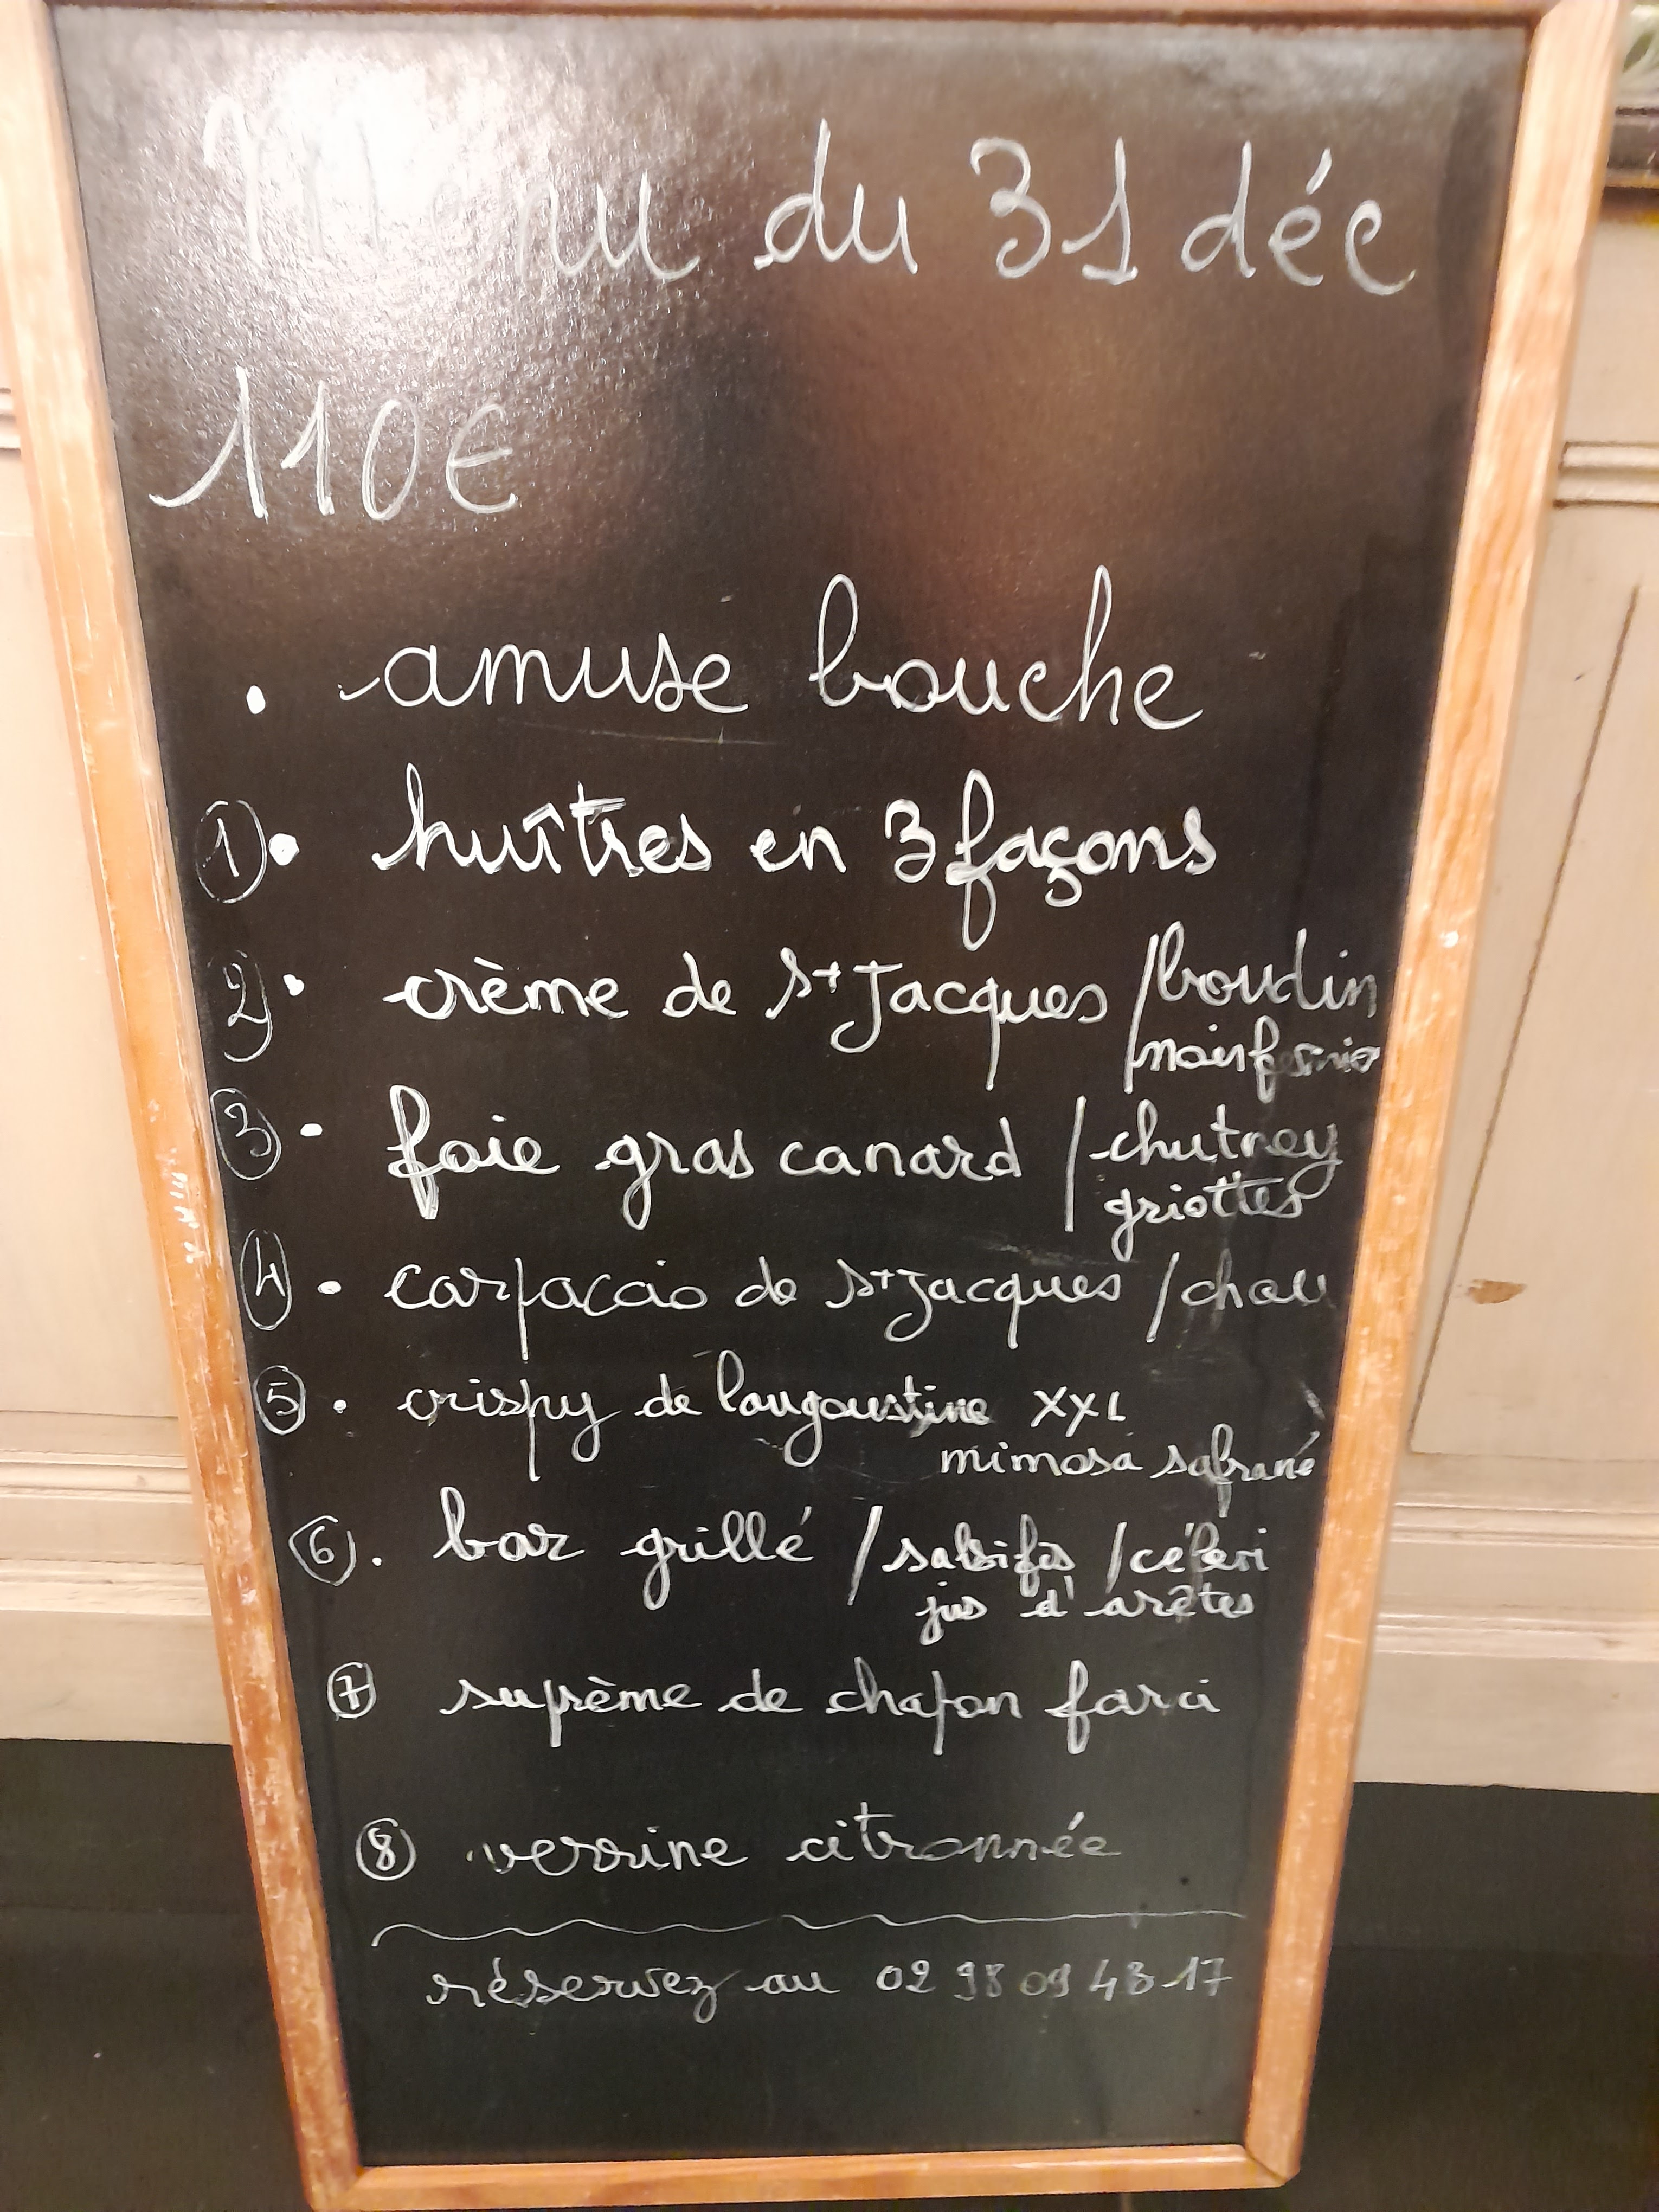 Menu du 31 déc
110€
. amuse bouche
1 • huîtres en 3 façons
2 • crème de St Jacques / boudin
noir fermier
3 - foie gras canard / chutney
griottes
4 - carpaccio de St Jacques / chou
5 . crispy de langoustine XXL
mimosa safrané
6 . bar grillé / salsifis / céleri
jus d'arêtes
7 suprême de chapon farci
8 verrine citronnée
réservez au 02 98 09 43 17